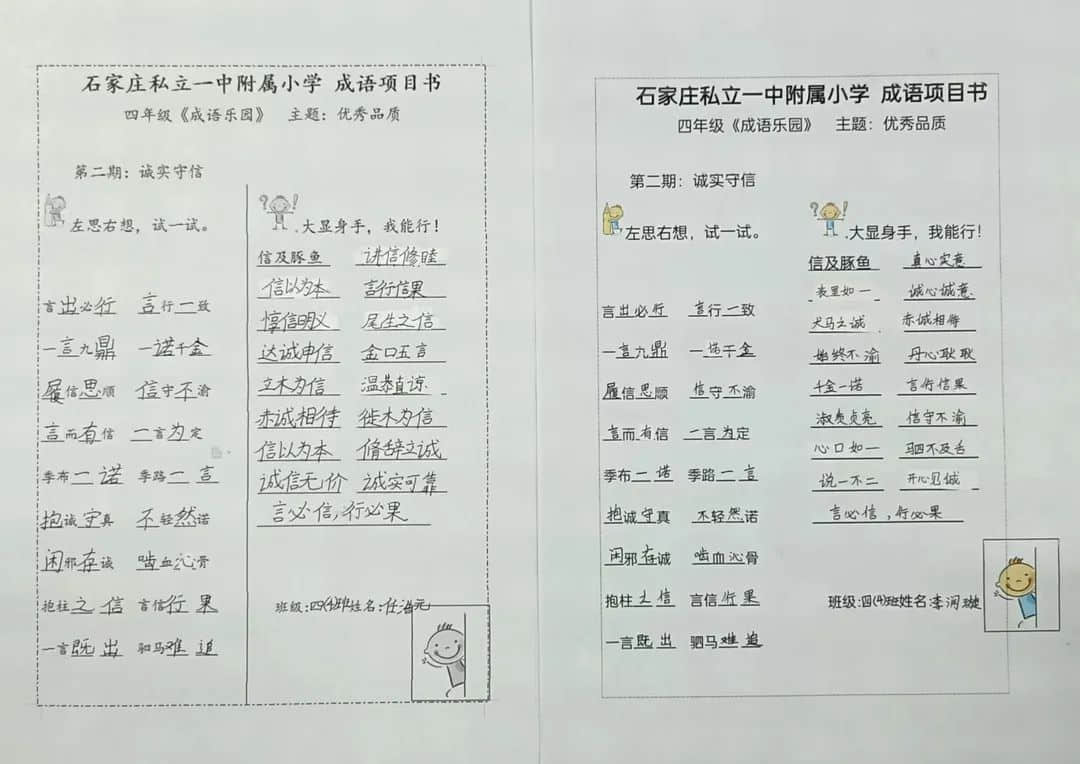 石家庄私立一中附属小学 成语项目书
四年级《成语乐园》 主题：优秀品质
第二期：诚实守信
左思右想，试一试。
言出必行 言行一致
一言九鼎 一诺千金
履信思顺 信守不渝
言而有信 一言为定
季布一诺 季路一言
抱诚守真 不轻然诺
闲邪存诚 啮血沁骨
抱柱之信 言信行果
一言既出 驷马难追
?!
大显身手，我能行！
信及豚鱼 讲信修睦
信以为本 言行信果
惇信明义 尾生之信
达诚申信 金口玉言
立木为信 温恭直谅
赤诚相待 徙木为信
信以为本 脩辞立诚
诚信无价 诚实可靠
言必信，行必果
班级：四(4)班姓名：任浩元
石家庄私立一中附属小学 成语项目书
四年级《成语乐园》 主题：优秀品质
第二期：诚实守信
左思右想，试一试。
言出必行 言行一致
一言九鼎 一诺千金
履信思顺 信守不渝
言而有信 一言为定
季布一诺 季路一言
抱诚守真 不轻然诺
闲邪存诚 啮血沁骨
抱柱之信 言信行果
一言既出 驷马难追
?!
大显身手，我能行！
信及豚鱼 真心实意
表里如一 诚心诚意
犬马之诚 赤诚相待
始终不渝 丹心耿耿
千金一诺 言行信果
淑质贞亮 信守不渝
心口如一 驷不及舌
说一不二 开心见诚
言必信，行必果
班级：四(4)班姓名：李润璇